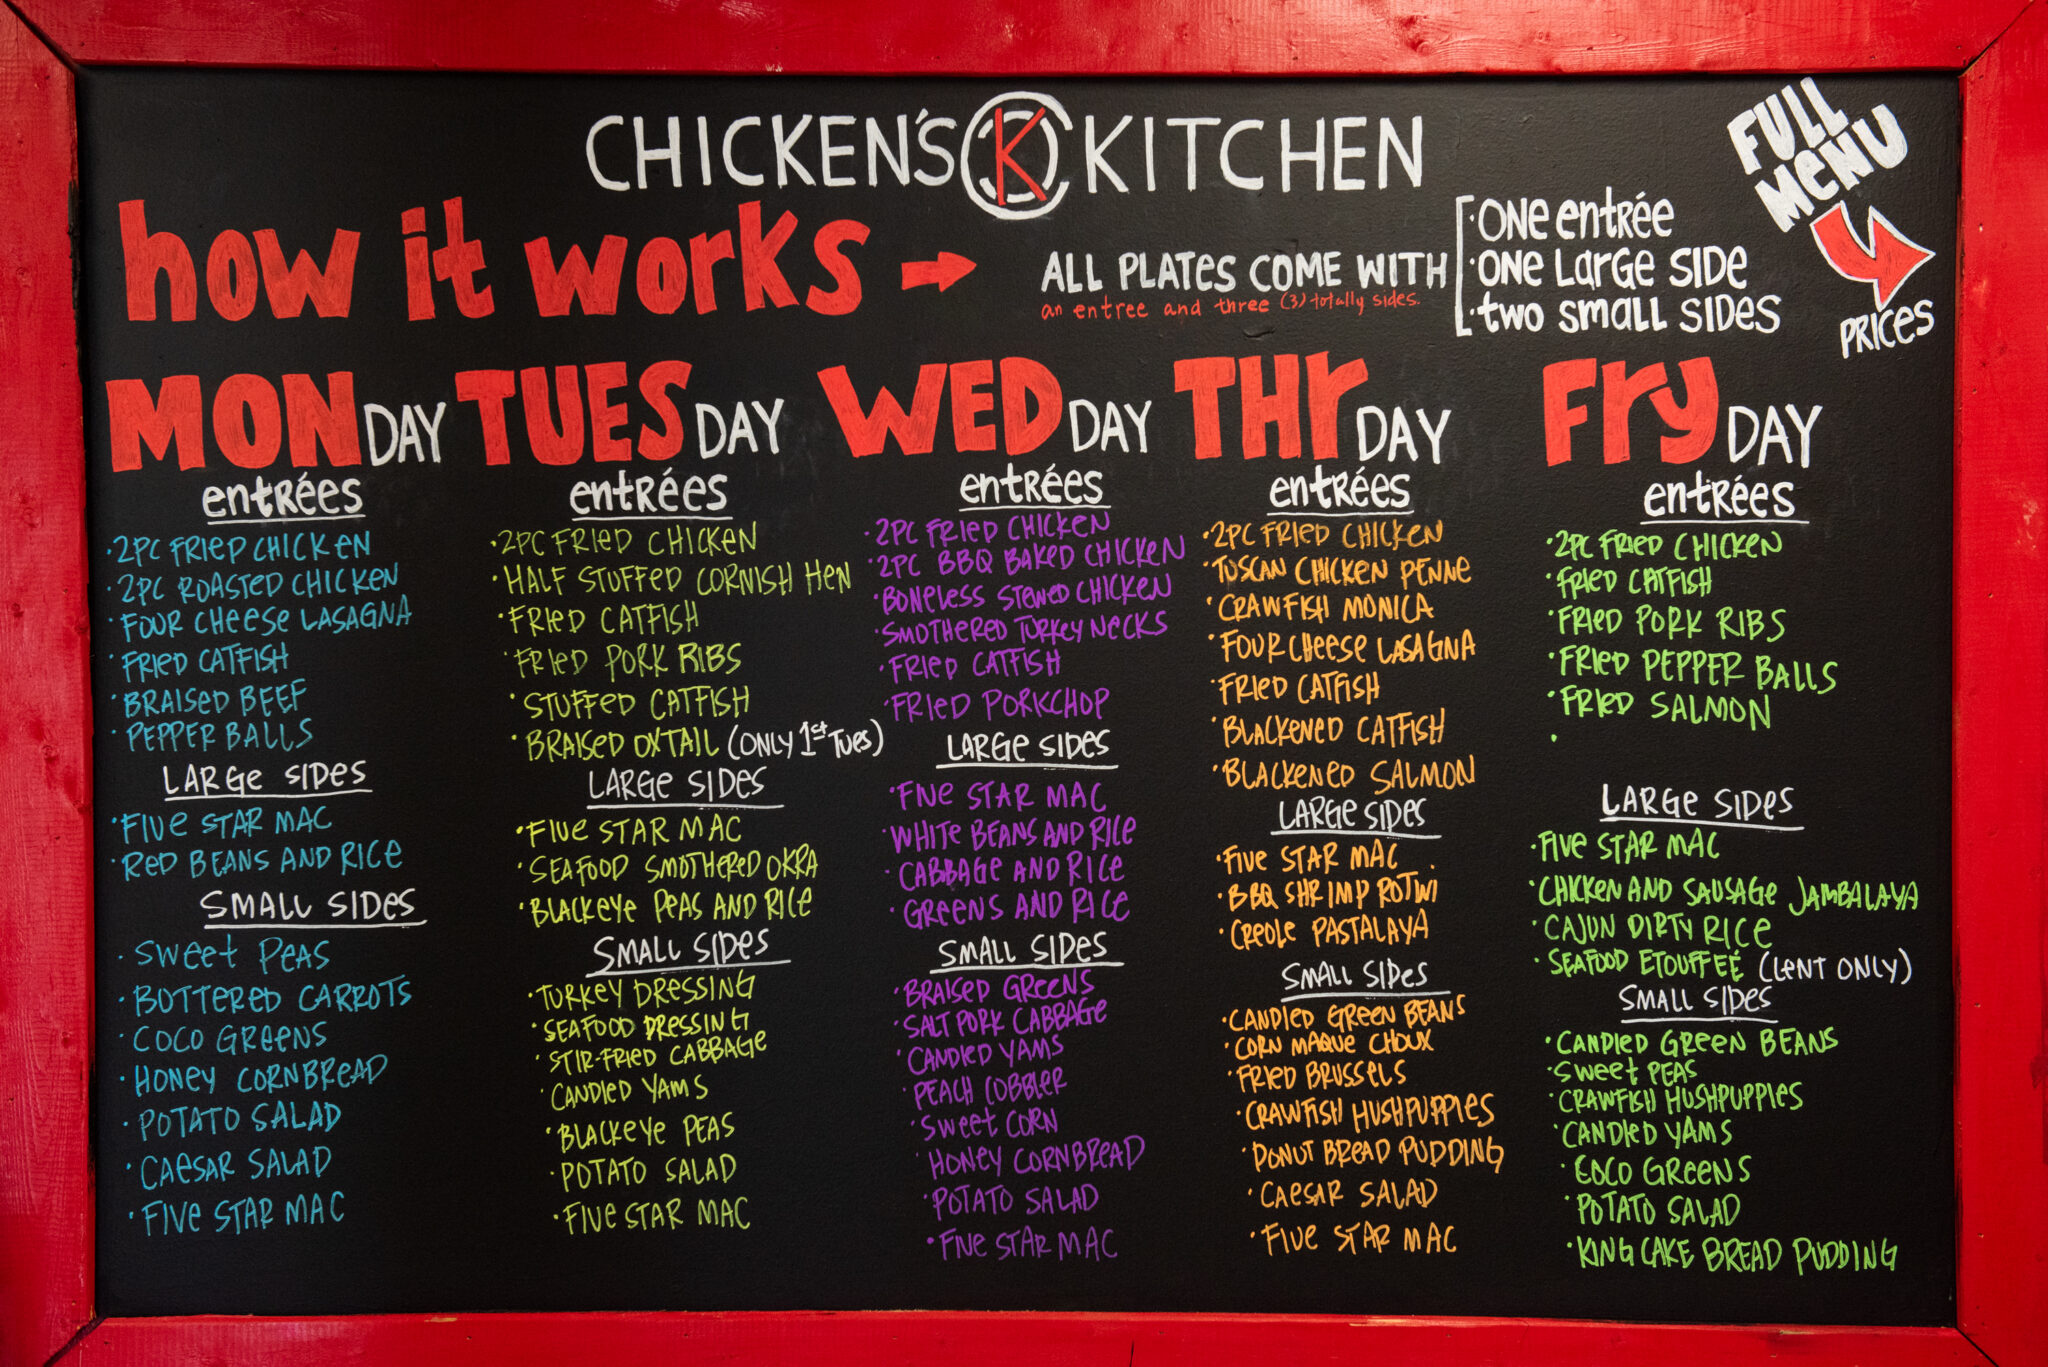 CHICKEN'S K KITCHEN
FULL
MENU
PRICES
how it works
ALL PLATES COME WITH
an entree and three (3) totally sides.
·ONE entrée
·ONE LARGE SIDE
·two small SIDES
MONDAY
entrées
·2PC FRIED CHICKEN
·2PC ROASTED CHICKEN
·FOUR CHEESE LASAGNA
·FRIED CATFISH
·BRAISED BEEF
·PEPPER BALLS
LARGE SIDES
·FIVE STAR MAC
·RED BEANS AND RICE
SMALL SIDES
·SWEET PEAS
·BUTTERED CARROTS
·COCO GREENS
·HONEY CORNBREAD
·POTATO SALAD
·CAESAR SALAD
·FIVE STAR MAC
TUESDAY
entrées
·2PC FRIED CHICKEN
·HALF STUFFED CORNISH HEN
·FRIED CATFISH
·FRIED PORK RIBS
·STUFFED CATFISH
·BRAISED OXTAIL (ONLY 1st TUES)
LARGE SIDES
·FIVE STAR MAC
·SEAFOOD SMOTHERED OKRA
·BLACKEYE PEAS AND RICE
SMALL SIDES
·TURKEY DRESSING
·SEAFOOD DRESSING
·STIR-FRIED CABBAGE
·CANDIED YAMS
·BLACKEYE PEAS
·POTATO SALAD
·FIVE STAR MAC
WEDDAY
entrées
·2PC FRIED CHICKEN
·2PC BBQ BAKED CHICKEN
·BONELESS STEWED CHICKEN
·SMOTHERED TURKEY NECKS
·FRIED CATFISH
·FRIED PORKCHOP
LARGE SIDES
·FIVE STAR MAC
·WHITE BEANS AND RICE
·CABBAGE AND RICE
·GREENS AND RICE
SMALL SIDES
·BRAISED GREENS
·SALT PORK CABBAGE
·CANDIED YAMS
·PEACH COBBLER
·SWEET CORN
·HONEY CORNBREAD
·POTATO SALAD
·FIVE STAR MAC
THrDAY
entrées
·2PC FRIED CHICKEN
·TUSCAN CHICKEN PENNE
·CRAWFISH MONICA
·FOUR CHEESE LASAGNA
·FRIED CATFISH
·BLACKENED CATFISH
·BLACKENED SALMON
LARGE SIDES
·FIVE STAR MAC
·BBQ SHRIMP ROTINI
·CREOLE PASTALAYA
SMALL SIDES
·CANDIED GREEN BEANS
·CORN MAQUE CHOUX
·FRIED BRUSSELS
·CRAWFISH HUSHPUPPIES
·DONUT BREAD PUDDING
·CAESAR SALAD
·FIVE STAR MAC
FryDAY
entrées
·2PC FRIED CHICKEN
·FRIED CATFISH
·FRIED PORK RIBS
·FRIED PEPPER BALLS
·FRIED SALMON
·
LARGE SIDES
·FIVE STAR MAC
·CHICKEN AND SAUSAGE JAMBALAYA
·CAJUN DIRTY RICE
·SEAFOOD ETOUFFEÉ (LENT ONLY)
SMALL SIDES
·CANDIED GREEN BEANS
·SWEET PEAS
·CRAWFISH HUSHPUPPIES
·CANDIED YAMS
·COCO GREENS
·POTATO SALAD
·KING CAKE BREAD PUDDING